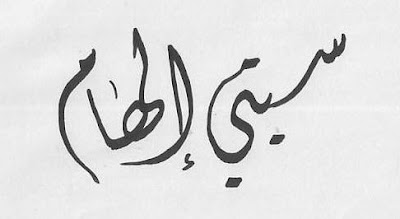 سيتي إلهام